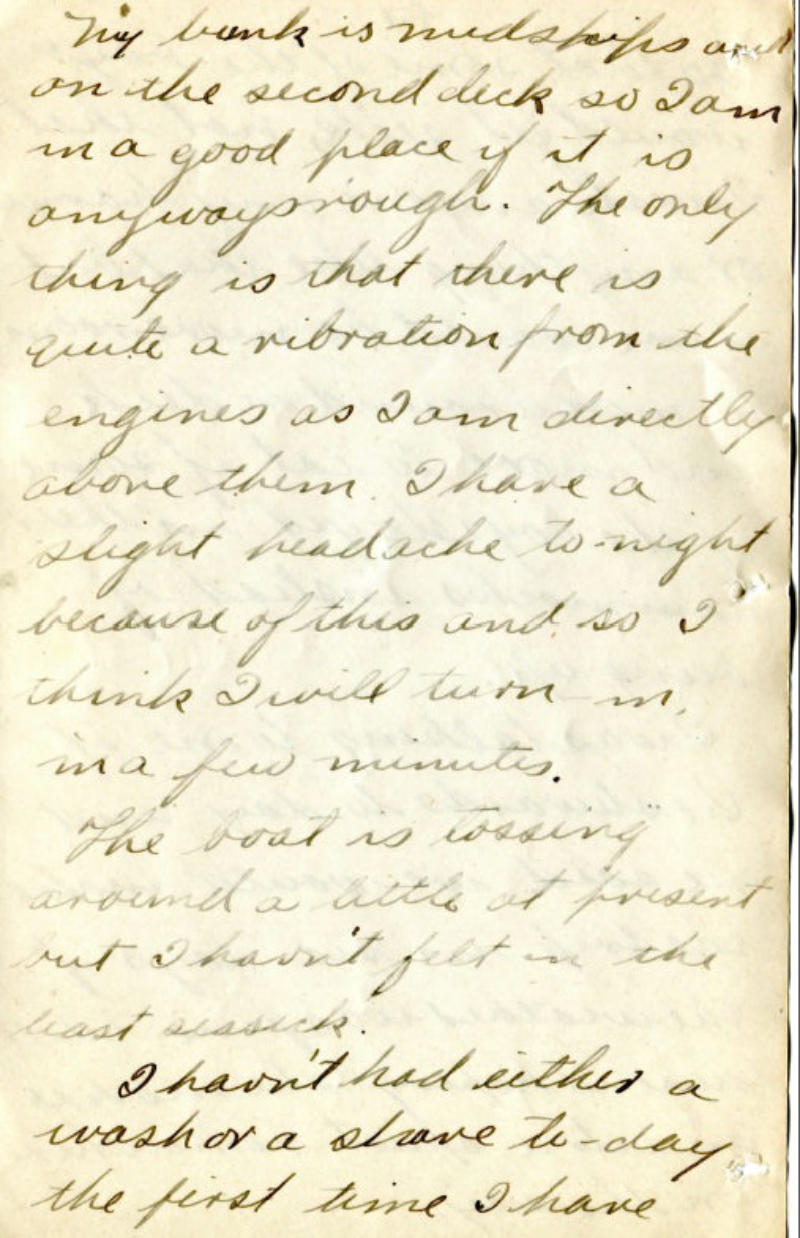 My bunk is midships and
on the second deck so I am
in a good place if it is
anyways rough. The only
thing is that there is
quite a vibration from the
engines as I am directly
above them. I have a
slight headache to-night
because of this and so I
think I will turn in
in a few minutes.
The boat is tossing
around a little at present
but I havn't felt in the
least seasick.
I havn't had either a
wash or a shave to-day
the first time I have